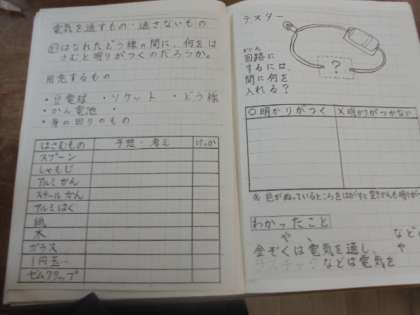 電気を通すもの・通さないもの
はなれたどう線の間に、何をは
さむと明りがつくのだろうか。
用意するもの
・豆電球 ・ソケット ・どう線
・かん電池
・身の回りのもの
はさむもの 予想・考え けっか
スプーン
しゃもじ
アルミかん
スチールかん
アルミはく
紙
木
ガラス
1円玉
ゼムクリップ
テスター
かいろ
回路に
するには、
間に何を
入れる?
?
○明かりがつく ×明かりがつかない
わかったこと
や、 など
金ぞくは電気を通し、 や
などは電気を